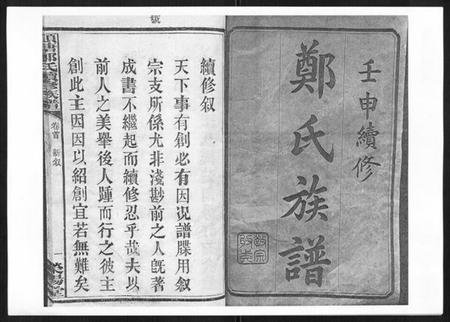 壬申續修
鄭氏族譜
續修叙
天下事有創必有因况譜牒用叙
宗支所係尤非淺尠前之人既著
成書不繼起而續修忍乎哉夫以
前人之美舉後人踵而行之彼主
創此主因因以紹創宜若無難矣
鄭氏續修族譜
卷首
新叙
一
滎陽堂